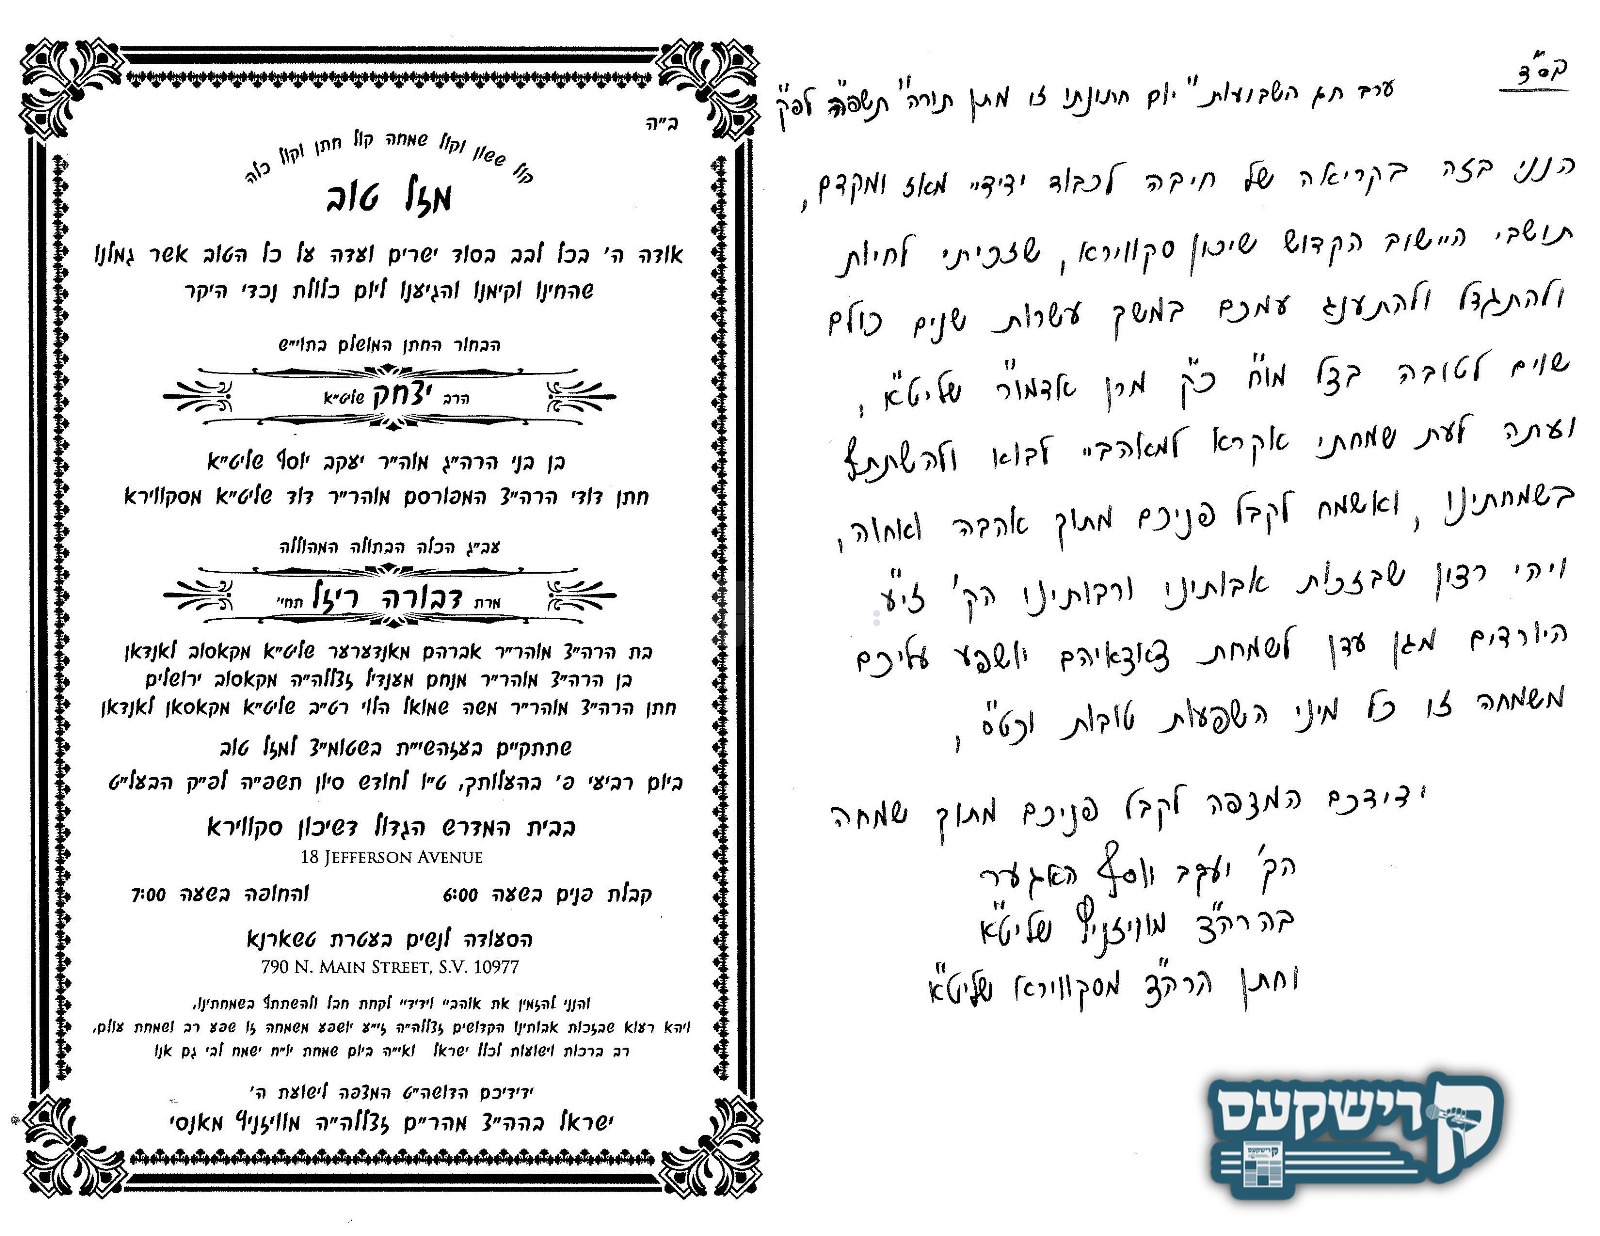 ב"ה
קול ששון וקול שמחה קול חתן וקול כלה
מזל טוב
אודה ה' בכל לבב בסוד ישרים ועדה על כל הטוב אשר גמלנו
שהחינו וקימנו והגיענו ליום כלולת נכדי היקר
הבחור החתן המושלם בתוי"ש
הרב יצחק שליט"א
בן בני הרה"ג מוה"ר יעקב יוסף שליט"א
חתן דודי הרה"צ המפורסם מוהר"ר דוד שליט"א מסקווירא
עב"ג הכלה הבתולה המהוללה
מרת דבורה רייזל תחי'
בת הרה"צ מוהר"ר אברהם מאנדערער שליט"א מקאסוב לאנדאן
בן הרה"צ מוהר"ר מנחם מענדיל זצללה"ה מקאסוב ירושלים
חתן הרה"צ מוהר"ר משה שמואל הלוי רט"ב שליט"א מקאסאן לאנדאן
שתתקיים בעזהשי"ת בשטומ"צ למזל טוב
ביום רביעי פ' בהעלותך, ט"ו לחודש סיון תשפ"ה לפ"ק הבעל"ט
בבית המדרש הגדול דשיכון סקווירא
18 Jefferson Avenue
קבלת פנים בשעה 6:00 והחופה בשעה 7:00
הסעודה לנשים בעטרת טשארנא
790 N. Main Street, S.V. 10977
והנני להזמין את אוהביי וידידיי לקחת חבל ולהשתתף בשמחתינו,
ויהא רעוא שבזכות אבותינו הקדושים זצללה"ה זי"ע יושפע משמחה זו שפע רב ושמחת עולם,
רב ברכות וישועות לכלל ישראל ואי"ה ביום שמחת יו"ח ישמח לבי גם אנו
ידידיכם הדושה"ט המצפה לישועת ה'
ישראל בהה"צ מהר"ם זצללה"ה מוויזניף מאנסי
בס"ד
ערב חג השבועות "יום חתונתו זו מתן תורה" תשפ"ה לפ"ק
הנני בזה בקריאה של חיבה לכבוד ידידיי מאז ומקדם,
תושבי היישוב הקדוש שיכון סקווירא, שזכיתי לחיות
ולהתגדל ולהתענג עמכם במשך עשרות שנים כולם
שוים לטובה בצל מו"ח כ"ק מרן אדמו"ר שליט"א,
ועתה לעת שמחתי אקרא למאהביי לבוא ולהשתתף
בשמחתינו, ואשמח לקבל פניכם מתוך אהבה ואחוה,
ויהי רצון שבזכות אבותינו ורבותינו הק' זי"ע
היורדים מגן עדן לשמחת צאצאיהם יושפע עליכם
משמחה זו כל מיני השפעות טובות וכט"ס,
ידידכם המצפה לקבל פניכם מתוך שמחה
הק' יעקב יוסף האגער
בהרה"צ מוויזניץ שליט"א
וחתן הרה"צ מסקווירא שליט"א
קרישקעס
קרישקעס